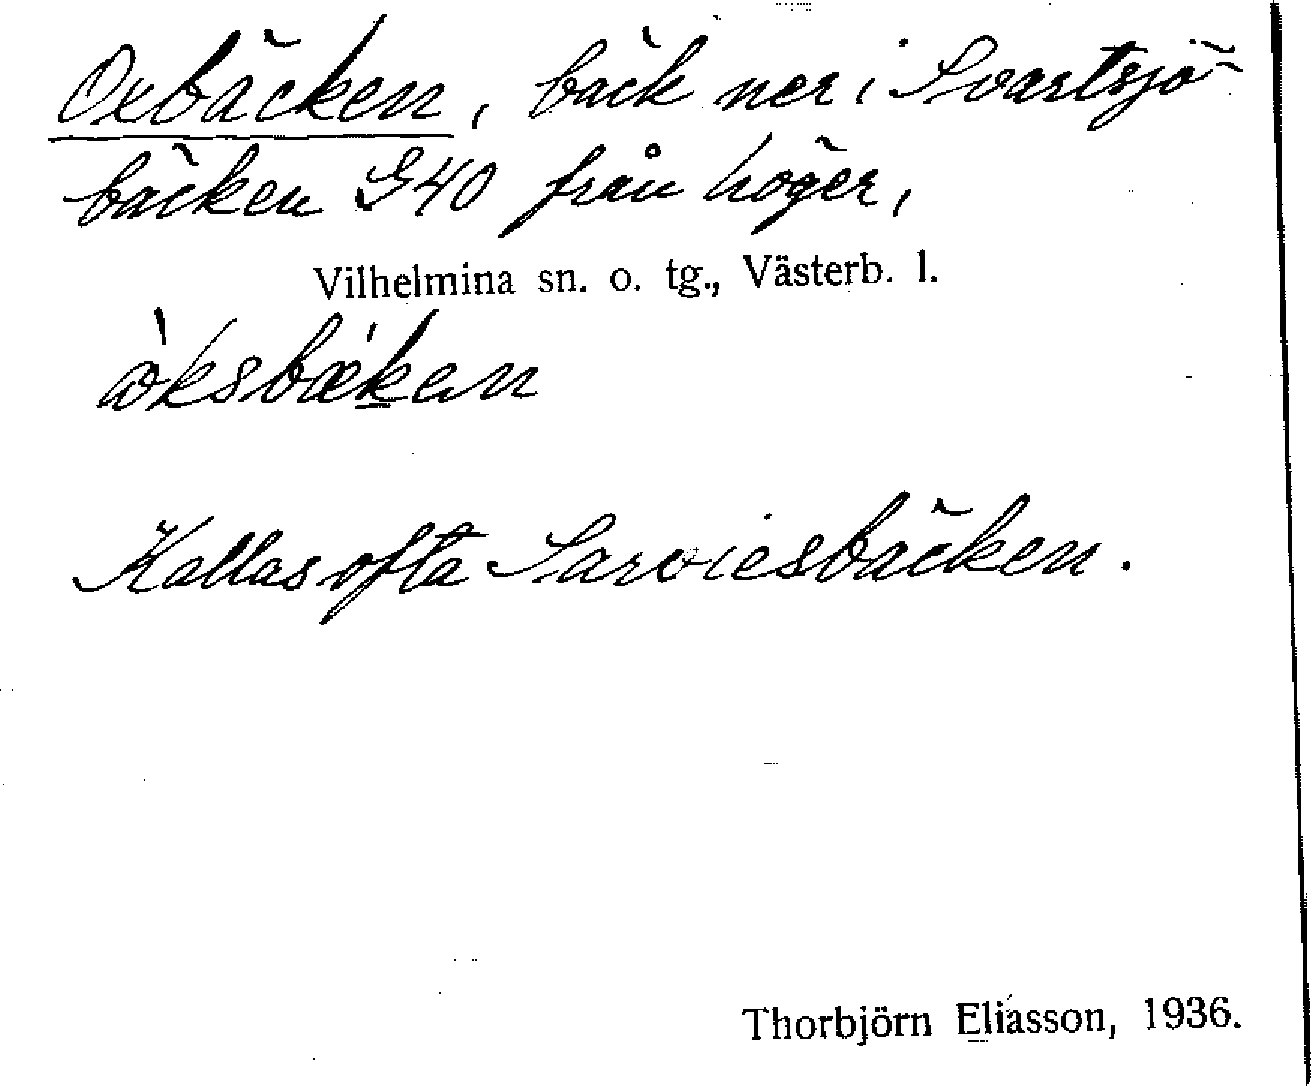 Oxbäcken, bäck ner i Svartsjö-
bäcken G40 från höger,
Vilhelmina sn. o. tg., Västerb. l.
ò̀ksbǽḵen
Kallas ofta Sarviesbäcken.
Thorbjörn Eliasson, 1936.